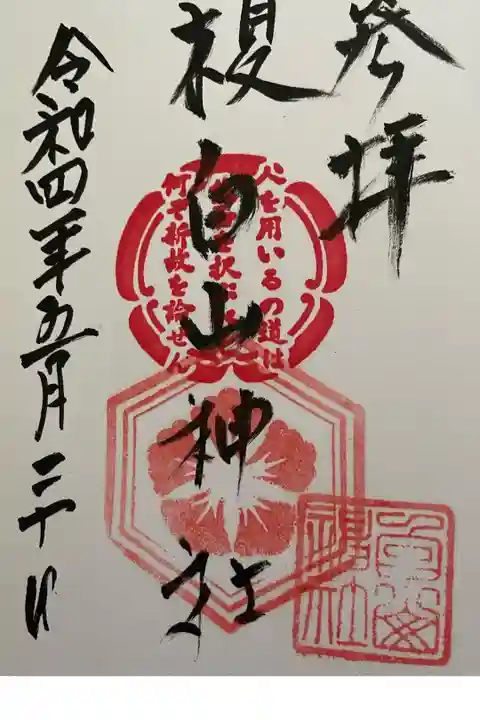 参拝
榎白山神社
令和四年五月二十日
人を用いるの道は
何ぞ新故を論せん